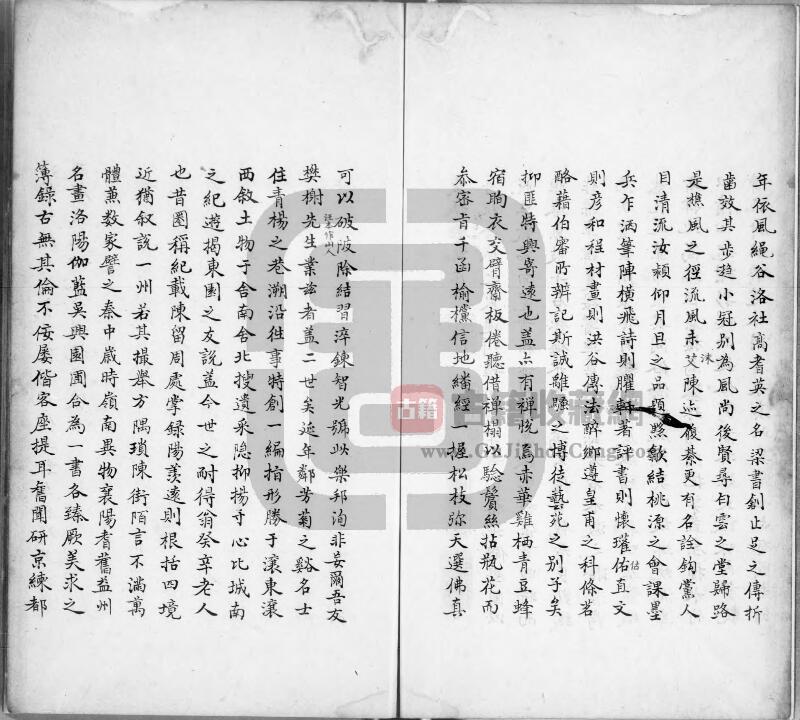 年依風繩谷洛社髙耆英之名梁書創止足之傳折
齒效其步趋小冠别為風尚後賢尋白雲之堂歸路
是樵風之徑流風未艾陳迹履綦更有名詮鉤黨人
沬
目清流汝潁仰月旦之品題㸃歙結桃源之會課墨
兵乍洒筆陣橫飛詩則臞軒著評書則懷瓘佑直文
估
則彥和程材畫則洪谷傳法醉鄉遵皇甫之科條茗
酪藉伯審所辨記斯誠雕騷之博徒藝苑之别子矣
抑匪特興寄遠也盖亦有禅悦焉赤華雞栖青豆蜂
宿昫衣交臂齋板倦聽借禅榻以騐鬢絲拈瓶花而
叅密肯千函榆欓信地繙經一握松枝弥天選佛真
可以破除結習淬鍊智光號此樂邦洵非妄爾吾友
樊榭先生業玆者盖二世矣延年鄰芳菊之谿名士
理本作山人
住青楊之巷溯沿往事特創一編指形勝于瀼東瀼
西敘土物于舍南舍北搜遺乘隐抑揚手心比城南
之紀遊揭東園之友説盖今世之耐得翁癸辛老人
也昔圈稱紀載陳留周處掌録陽羡遠則根括四境
近猶叙説一州若其撮舉方隅瑣陳街陌言不滿萬
體薫数家譬之秦中歲時嶺南異物襄陽耆舊益州
名畫洛陽伽藍吳興園圃合為一書各臻厥美求之
簿録古無其倫不佞屡偕客座提耳奮聞研京練都
古籍收藏網
www.GuJiShouCang.com